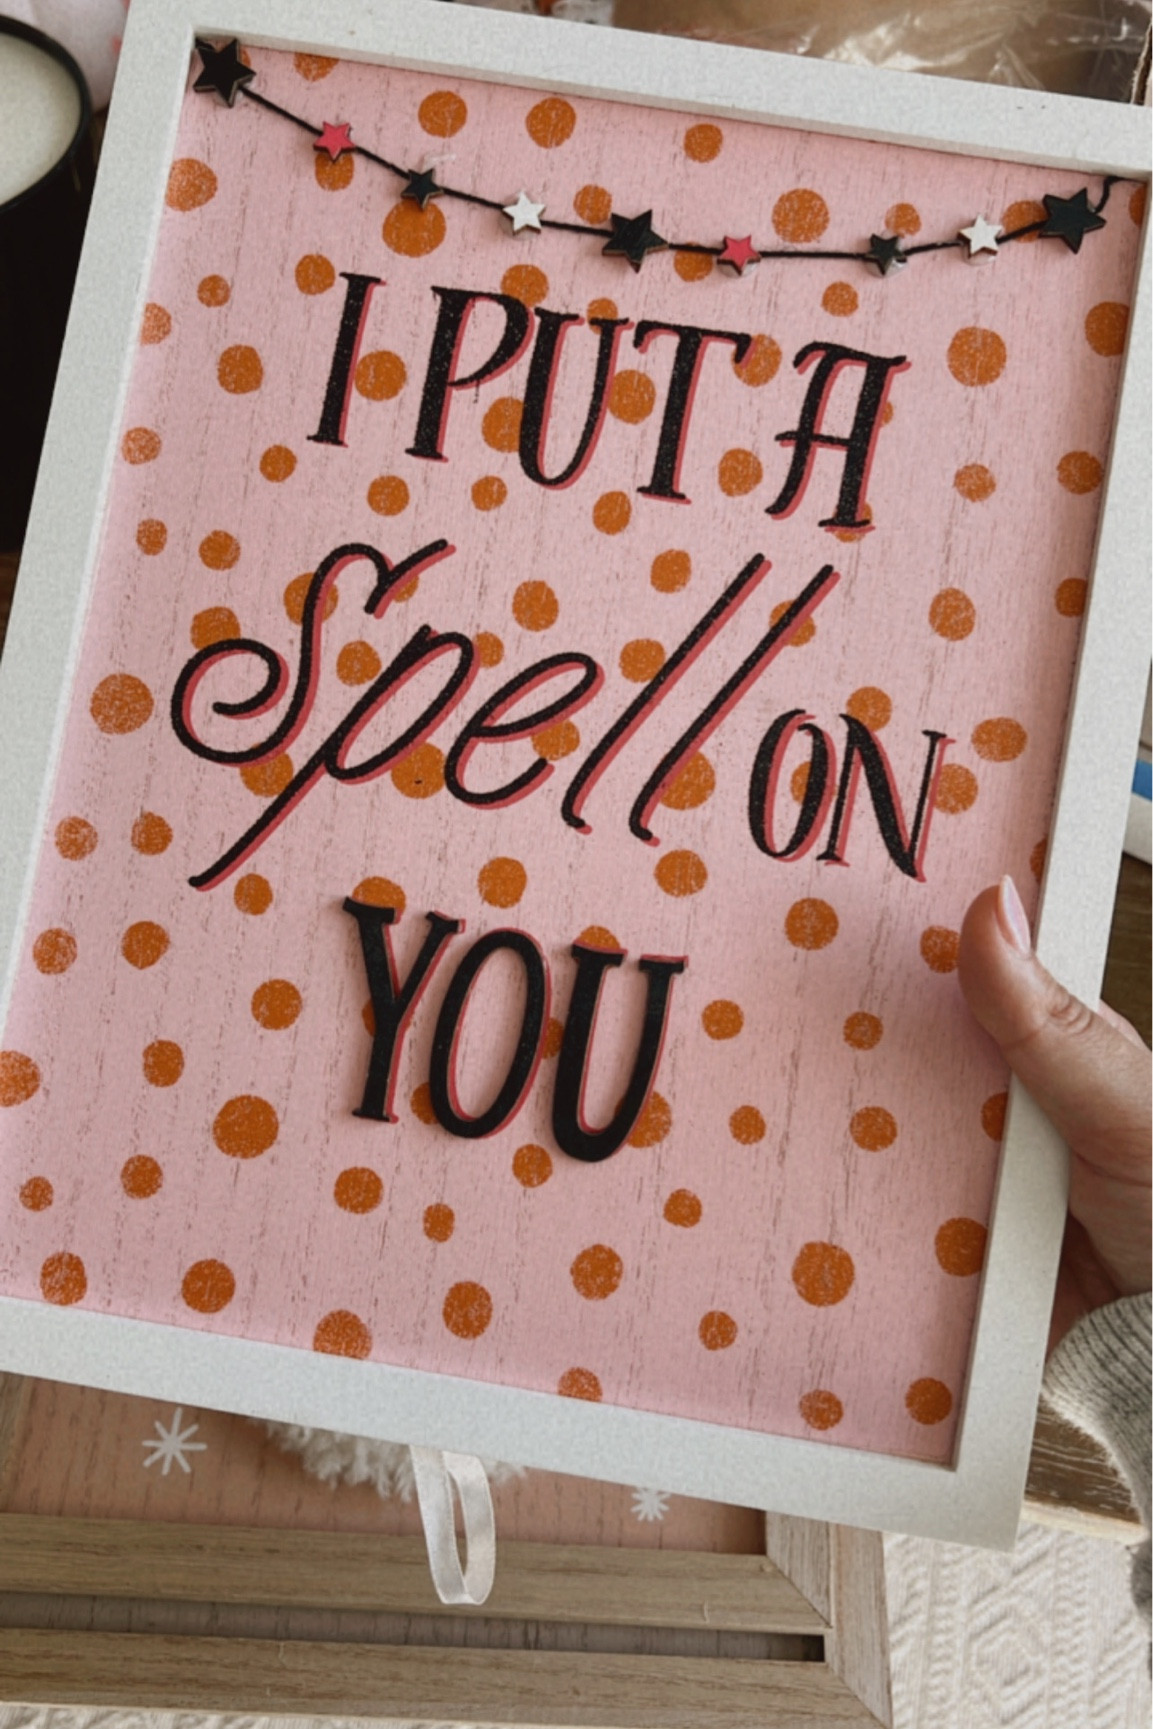 I PUT A
Spell ON
YOU